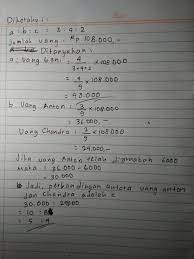 Diketahui :
a : b : c = 3 : 4 : 2
Jumlah uang : Rp 108.000
Ditanyakan :
a. Uang beni = 4/3+4+2
4/9 × 108.000
= 48.000
b. Uang Anton : 3/9 × 108.000
= 36.000,-
Uang Chandra : 2/9 × 108.000
= 24.000,-
Jika uang Anton telah digunakan 6000
maka : 36000 - 6000
= 30.000
Jadi, perbandingan antara uang anton
dan Chandra adalah :
30.000 : 24000
= 5 : 4